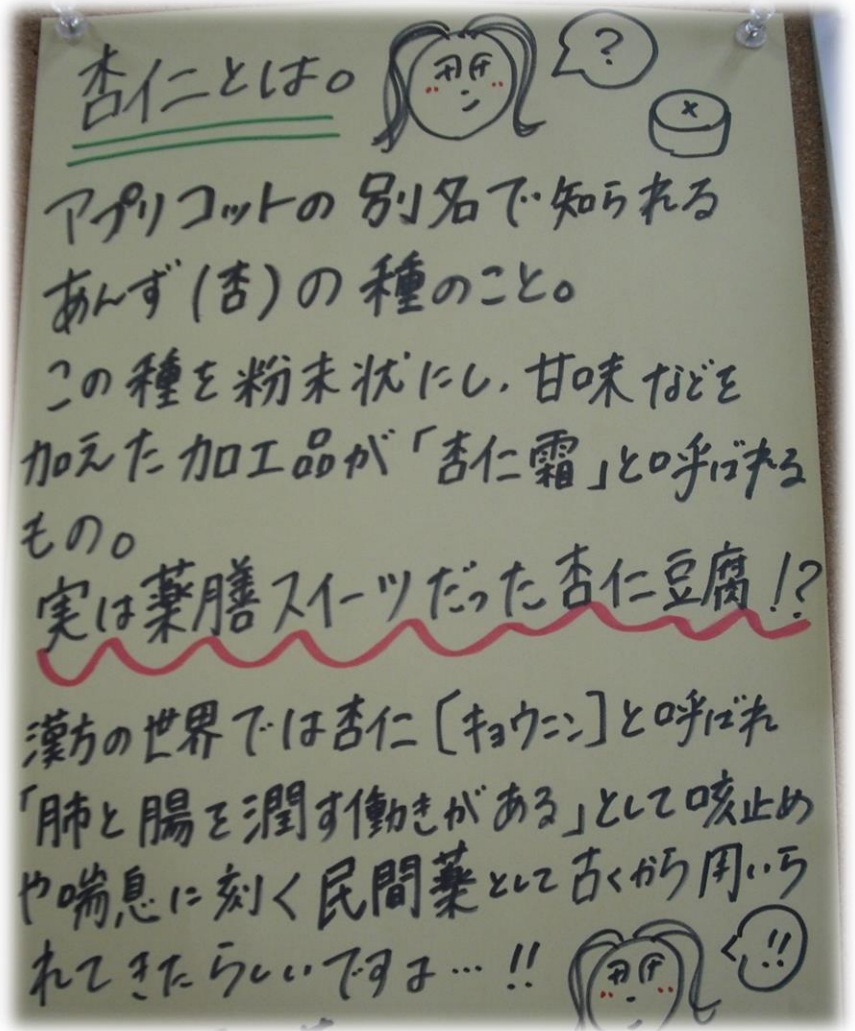 杏仁とは。
?
アプリコットの別名で知られる
あんず(杏)の種のこと。
この種を粉末状にし、甘味などを
加えた加工品が「杏仁霜」と呼ばれる
もの。
実は薬膳スイーツだった杏仁豆腐!?
漢方の世界では杏仁[キョウニン]と呼ばれ
「肺と腸を潤す働きがある」として咳止め
や喘息に刻く民間薬として古くから用いら
れてきたらしいですよ…!!
!!